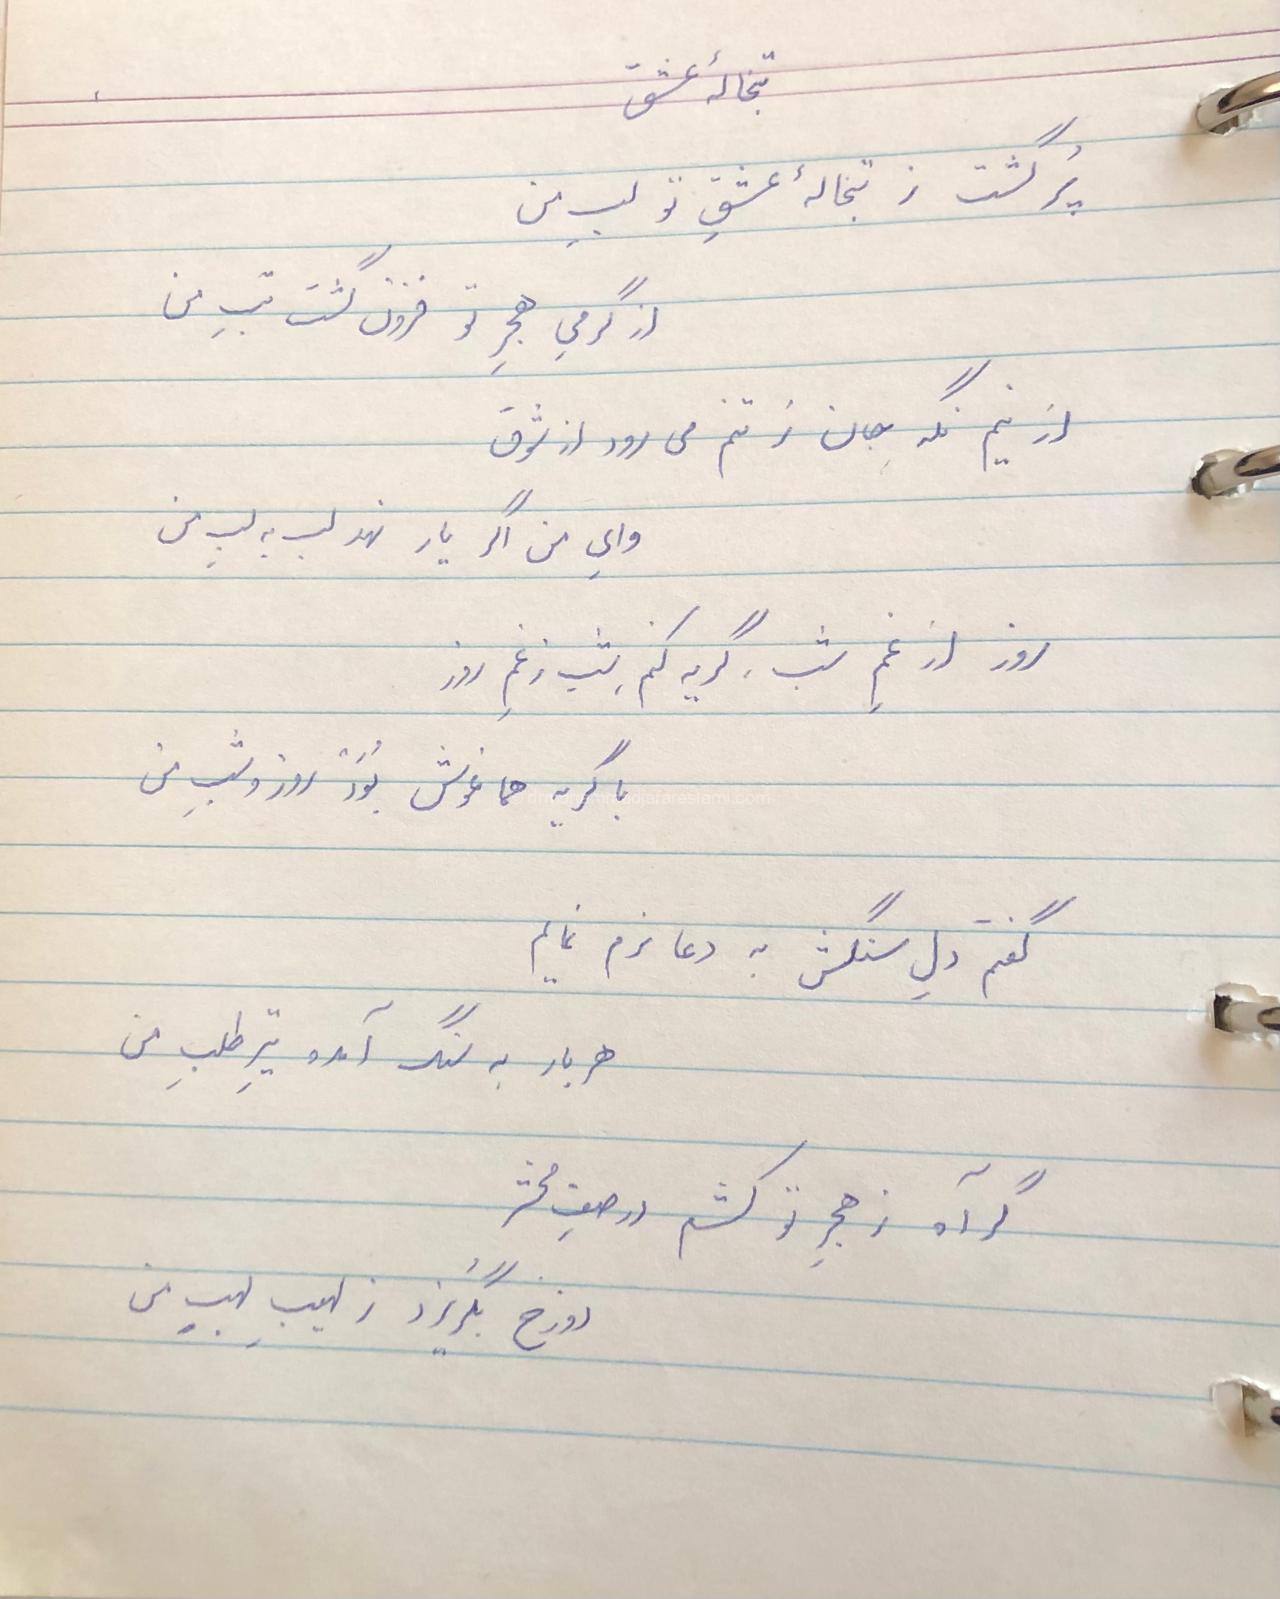 تبخالهٔ عشق
پُر گشت ز تبخالهٔ عشقِ تو لبِ من
از گرمیِ هجرِ تو فزون گشت تبِ من
از نیم نگه جان ز تنم می رود از شوق
وایِ من اگر یار نهد لب به لبِ من
روز از غمِ شب، گریه کنم شب ز غمِ روز
با گریه هماغوش بُوَد روز و شبِ من
گفتم دلِ سنگش به دعا نرم نمایم
هر بار به سنگ آمده تیرِ طلبِ من
گر آه ز هجرِ تو کشم در صفِ محشر
دوزخ بگُریزد ز لهیبِ لهبِ من